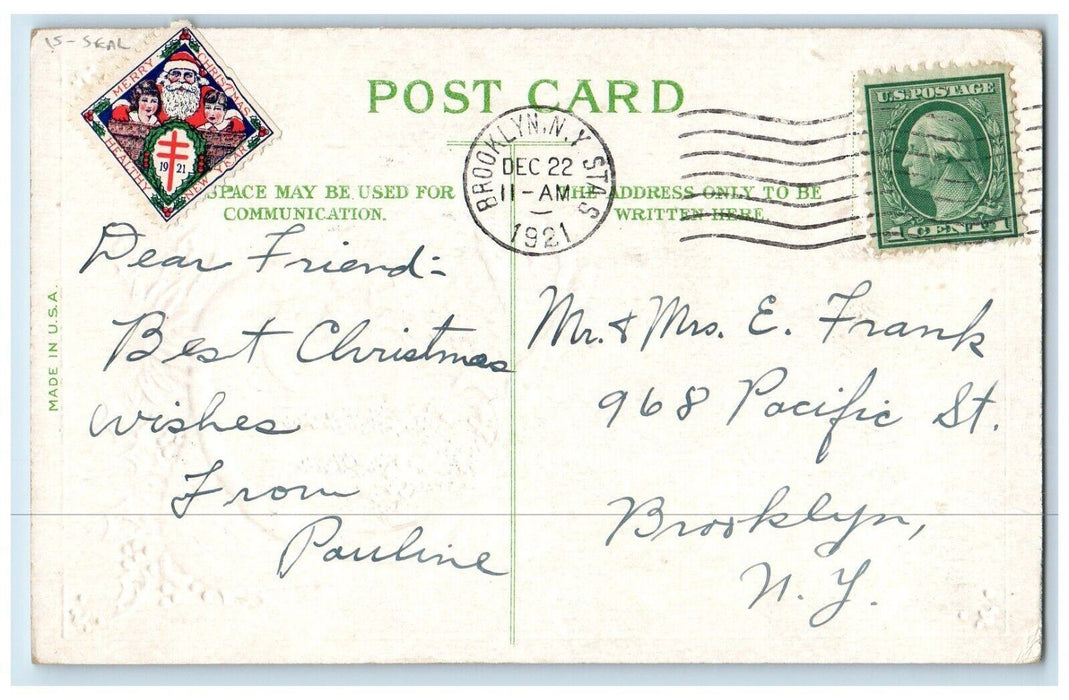 15-SEAL
MERRY CHRISTMAS
HEALTHY NEW YEAR
1921
POST CARD
BROOKLYN, N.Y. STA. S
DEC 22
11-AM
1921
U.S. POSTAGE
1 CENT 1
SPACE MAY BE USED FOR
COMMUNICATION.
THE ADDRESS ONLY TO BE
WRITTEN HERE.
MADE IN U.S.A.
Dear Friend:-
Best Christmas
wishes
From
Pauline
Mr. & Mrs. E. Frank
968 Pacific St.
Brooklyn,
N. Y.